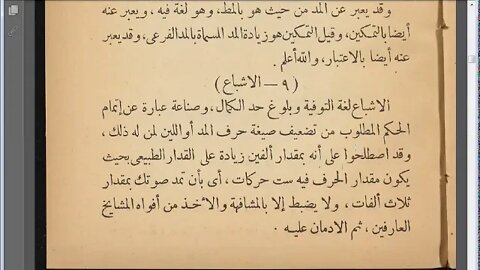 وقد يعبر عن المد من حيث هو بالمط، وهو لغة فيه، ويعبر عنه
أيضا بالتمكين، وقيل التمكين هو زيادة المد المسماة بالمد الفرعى، وقد يعبر
عنه أيضا بالاعتبار، والله أعلم.
(٩ – الاشباع)
الاشباع لغة التوفية وبلوغ حد الكمال، وصناعة عبارة عن إتمام
الحكم المطلوب من تضعيف صيغة حرف المد أو اللين لمن له ذلك،
وقد اصطلحوا على أنه بمقدار ألفين زيادة على القدار الطبيعى بحيث
يكون مقدار الحرف فيه ست حركات، أى بأن تمد صوتك بمقدار
ثلاث ألفات، ولا يضبط إلا بالمشافهة والأخذ من أفواه المشايخ
العارفين، ثم الادمان عليه.